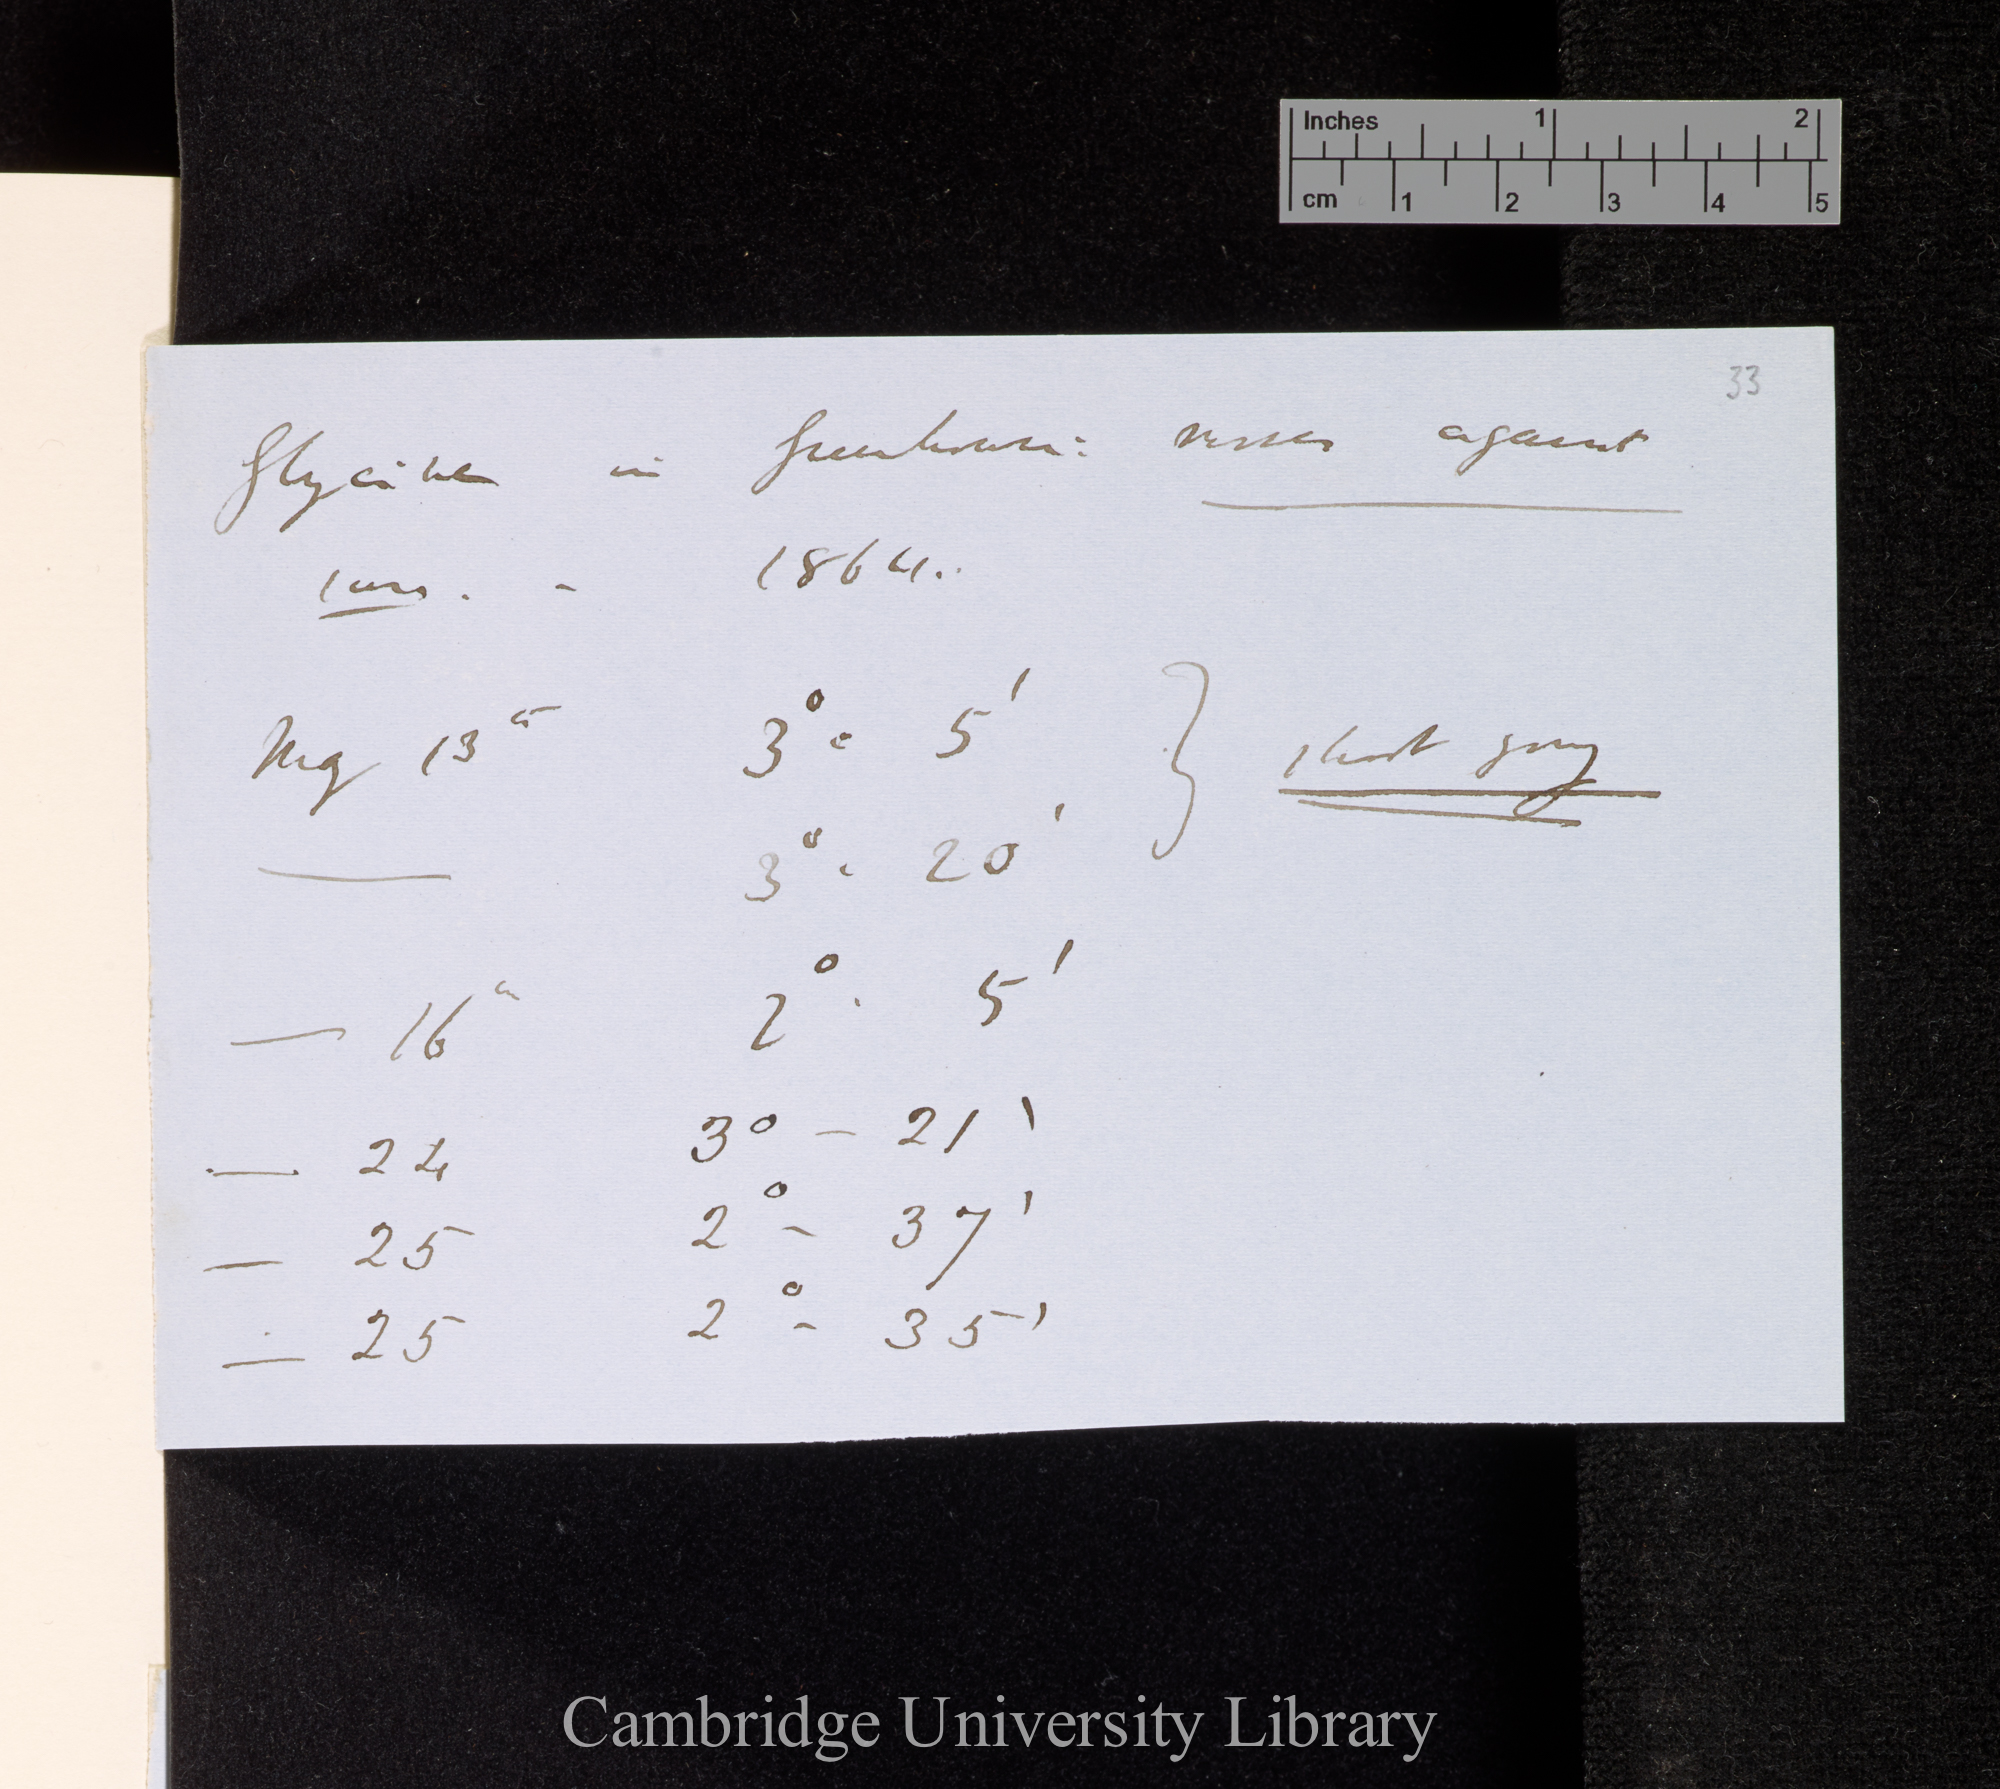 Inches 1 2
cm 1 2 3 4 5
33
Glycine in Greenhouse: moves against
sun. - 1864.
May 13th 3° . 5'
short young
— 3° . 20'
— 16th 2° . 5'
— 24 3° – 21'
— 25 2° – 37'
— 25 2° – 35'
Cambridge University Library